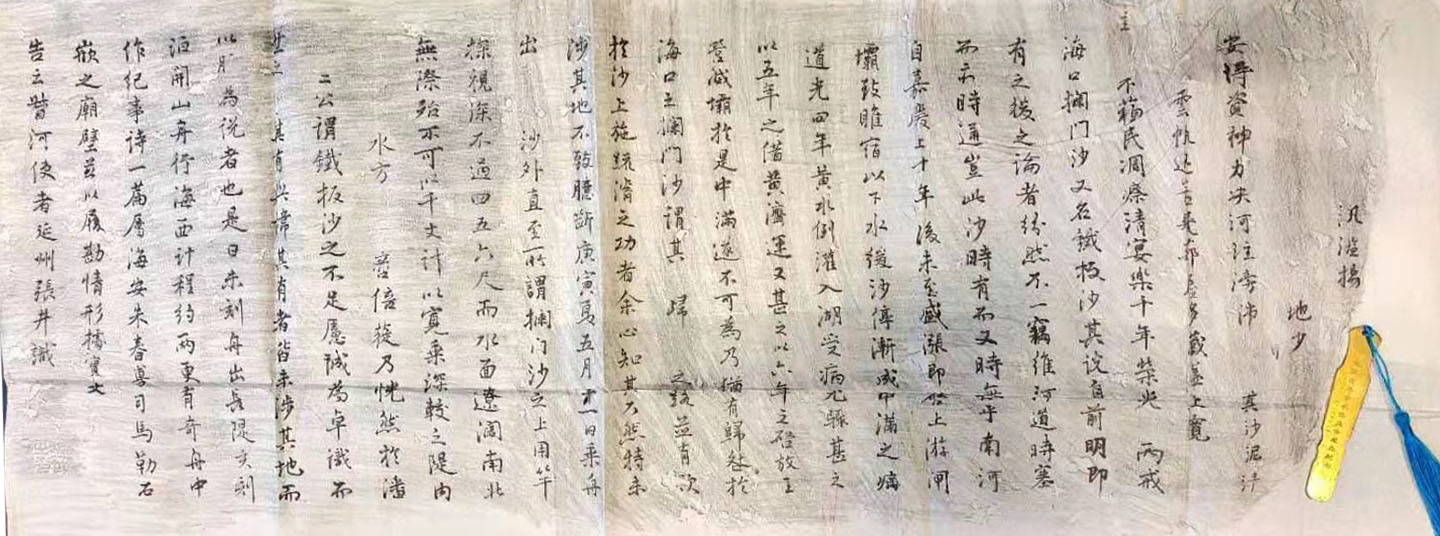 汎溢揚
地少 其沙泥浮
安得資神力决河注海沛
雲帆近
不藉民凋瘵清宴樂千年柴火 兩戒
海口攔門沙又名鐵板沙其说自前明即
有之後之論者紛然不一竊維河道時塞
而亦時通豈此沙時有而又時無乎南河
自嘉慶二十年後未至盛漲即啓上游閘
壩致睢宿以下水緩沙停漸成中滿之病
道光四年黄水倒灌入湖受病尤驟甚之
以五年之借黄濟運又甚之以六年之啓放王
營减壩於是中滿遂不可為乃猶有歸咎於
海口之攔門沙謂其 歸 之路並有欲
於沙上施疏濬之功者余心知其不然特未
涉其地不敢臆斷庚寅夏五月十一日乘舟
出 沙外直至所謂攔门沙之上用竿
探視深不過四五六尺而水面遼濶南北
無際殆不可以千丈計以寬乘深較之隄内
水方 奚啻倍蓰乃恍然於潘
二公謂鐵板沙之不足慮誠為卓識而
世之 其有與帶其有者皆未涉其地而
以 為说者也是日未刻舟出長隄亥刻
泊開山舟行海西計程約两更有奇舟中
作纪事诗一篇屬海安朱春 司馬勒石
嵌之廟壁並以履勘情形據實大
告云督河使者延州張井識